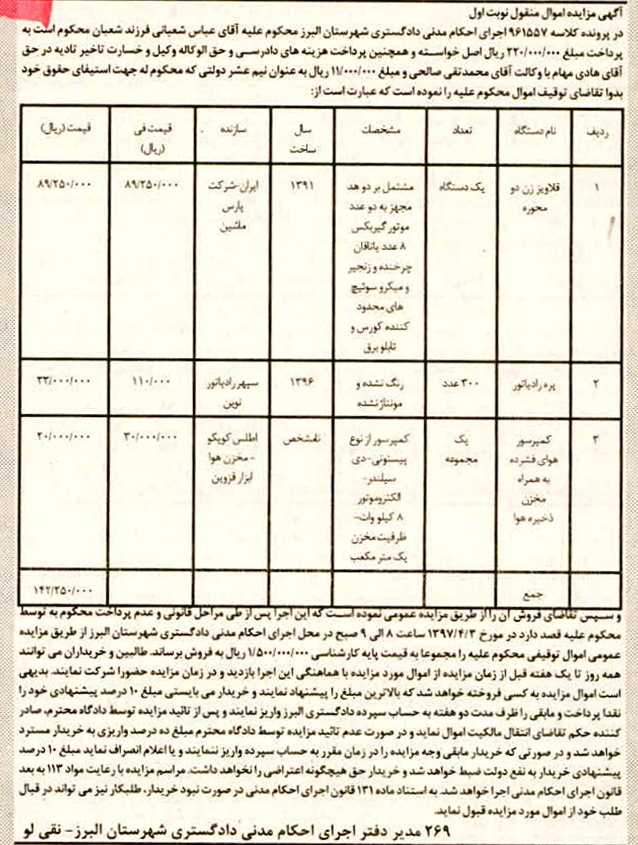 آگهی مزایده اموال منقول نوبت اول
در پرونده کلاسه ۹۶۱۵۵۷ اجرای احکام مدنی دادگستری شهرستان البرز محکوم علیه آقای عباس شعبانی فرزند شعبان محکوم است به
پرداخت مبلغ ۲۲۰/۰۰۰/۰۰۰ ریال اصل خواسته و همچنین پرداخت هزینه های دادرسی و حق الوکاله وکیل و خسارت تاخیر تادیه در حق
آقای هادی مهام با وکالت آقای محمدتقی صالحی و مبلغ ۱۱/۰۰۰/۰۰۰ ریال به عنوان نیم عشر دولتی که محکوم له جهت استیفای حقوق خود
بدوا تقاضای توقیف اموال محکوم علیه را نموده است که عبارت است از:
ردیف نام دستگاه تعداد مشخصات سال ساخت سازنده قیمت فی (ریال) قیمت (ریال)
۱ قلاویز زن دو محوره یک دستگاه مشتمل بر دو هد مجهز به دو عدد موتور گیربکس ۸ عدد یاتاقان چرخنده و زنجیر و میکرو سوئیچ های محدود کننده کورس و تابلو برق ۱۳۹۱ ایران-شرکت پارس ماشین ۸۹/۲۵۰/۰۰۰ ۸۹/۲۵۰/۰۰۰
۲ پره رادیاتور ۳۰۰ عدد رنگ نشده و مونتاژ نشده ۱۳۹۶ سپهر رادیاتور نوین ۱۱۰/۰۰۰ ۳۳/۰۰۰/۰۰۰
۳ کمپرسور هوای فشرده به همراه مخزن ذخیره هوا یک مجموعه کمپرسور از نوع پیستونی-دی سیلندر- الکتروموتور ۸ کیلو وات- ظرفیت مخزن یک متر مکعب نامشخص اطلس کوپکو - مخزن هوا ابزار قزوین ۳۰/۰۰۰/۰۰۰ ۲۰/۰۰۰/۰۰۰
جمع ۱۴۲/۲۵۰/۰۰۰
و سپس تقاضای فروش آن را از طریق مزایده عمومی نموده است که این اجرا پس از طی مراحل قانونی و عدم پرداخت محکوم به توسط
محکوم علیه قصد دارد در مورخ ۱۳۹۷/۴/۳ ساعت ۸ الی ۹ صبح در محل اجرای احکام مدنی دادگستری شهرستان البرز از طریق مزایده
عمومی اموال توقیفی محکوم علیه را مجموعا به قیمت پایه کارشناسی ۱/۵۰۰/۰۰۰/۰۰۰ ریال به فروش برساند. طالبین و خریداران می توانند
همه روز تا یک هفته قبل از زمان مزایده از اموال مورد مزایده با هماهنگی این اجرا بازدید و در زمان مزایده حضورا شرکت نمایند. بدیهی
است اموال مزایده به کسی فروخته خواهد شد که بالاترین مبلغ را پیشنهاد نمایند و خریدار می بایستی مبلغ ۱۰ درصد پیشنهادی خود را
نقدا پرداخت و مابقی را ظرف مدت دو هفته به حساب سپرده دادگستری البرز واریز نمایند و پس از تائید مزایده توسط دادگاه محترم، صادر
کننده حکم تقاضای انتقال مالکیت اموال نماید و در صورت عدم تائید مزایده توسط دادگاه محترم مبلغ ده درصد واریزی به خریدار مسترد
خواهد شد و در صورتی که خریدار مابقی وجه مزایده را در زمان مقرر به حساب سپرده واریز ننمایند و یا اعلام انصراف نماید مبلغ ۱۰ درصد
پیشنهادی خریدار به نفع دولت ضبط خواهد شد و خریدار حق هیچگونه اعتراضی را نخواهد داشت. مراسم مزایده با رعایت مواد ۱۱۳ به بعد
قانون اجرای احکام مدنی اجرا خواهد شد. به استناد ماده ۱۳۱ قانون اجرای احکام مدنی در صورت نبود خریدار، طلبکار نیز می تواند در قبال
طلب خود از اموال مورد مزایده قبول نماید.
۲۶۹ مدیر دفتر اجرای احکام مدنی دادگستری شهرستان البرز- نقی لو